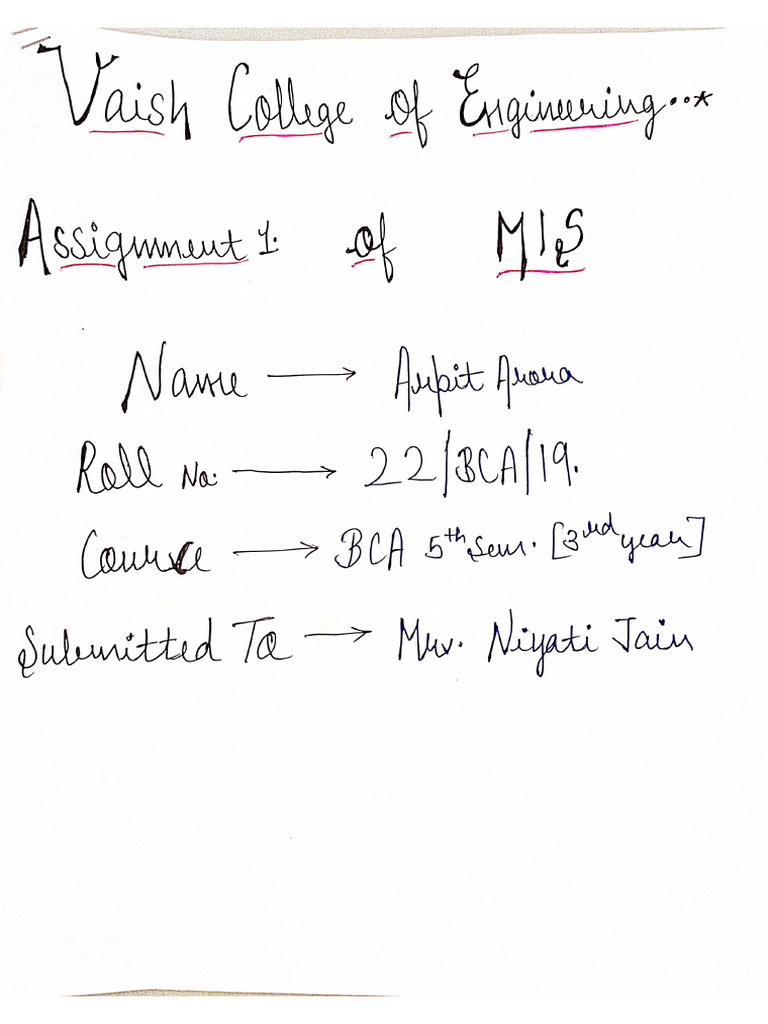 Vaish College of Engineering..*
Assignment 1. of MIS
Name → Arpit Arora
Roll No: → 22/BCA/19.
Course → BCA 5th Sem. [3rd year]
Submitted To → Niyati Jain